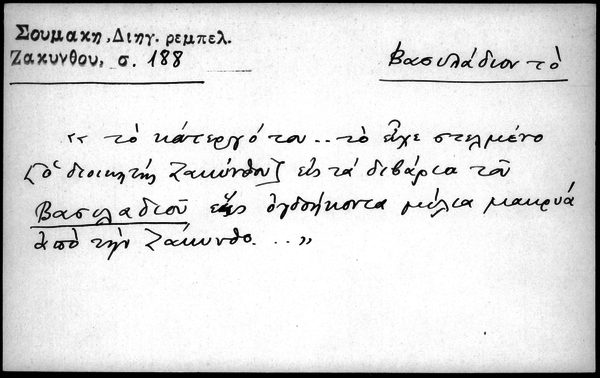 Σουμακη, Διηγ. ρεμπελ.
Ζακυνθου, σ. 188
Βασιλάδιον τὸ
« τὸ κάτεργό του .. τὸ εἶχε στελμένο
[ὁ διοικητής Ζακύνθου] εἰς τά διβάρια τοῦ
Βασιλαδιοῦ ὀγδοήκοντα μίλια μακρυά
ἀπό τήν Ζάκυνθο. .. »